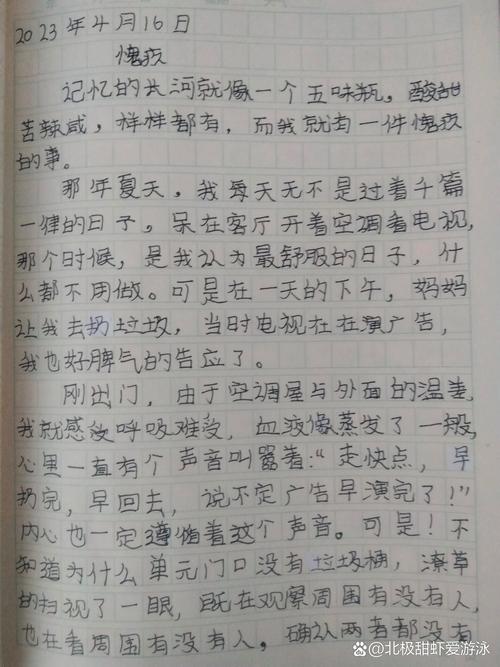 2023年4月16日
愧疚
记忆的长河就像一个五味瓶，酸甜
苦辣咸，样样都有，而我就有一件愧疚
的事。
那年夏天，我每天无不是过着千篇
一律的日子。呆在客厅开着空调看电视，
那个时候，是我认为最舒服的日子，什
么都不用做。可是在一天的下午，妈妈
让我去扔垃圾，当时电视在在演广告，
我也好脾气的答应了。
刚出门，由于空调屋与外面的温差，
我就感受呼吸难受，血液像蒸发了一般，
心里一直有个声音叫嚣着：“走快点，早
扔完，早回去，说不定广告早演完了！”
内心也一定遵循着这个声音。可是！不
知道为什么单元门口没有垃圾桶，潦草
的扫视了一眼，既在观察周围有没有人，
也在看周围有没有人，确认两者都没有
@北极甜虾爱游泳